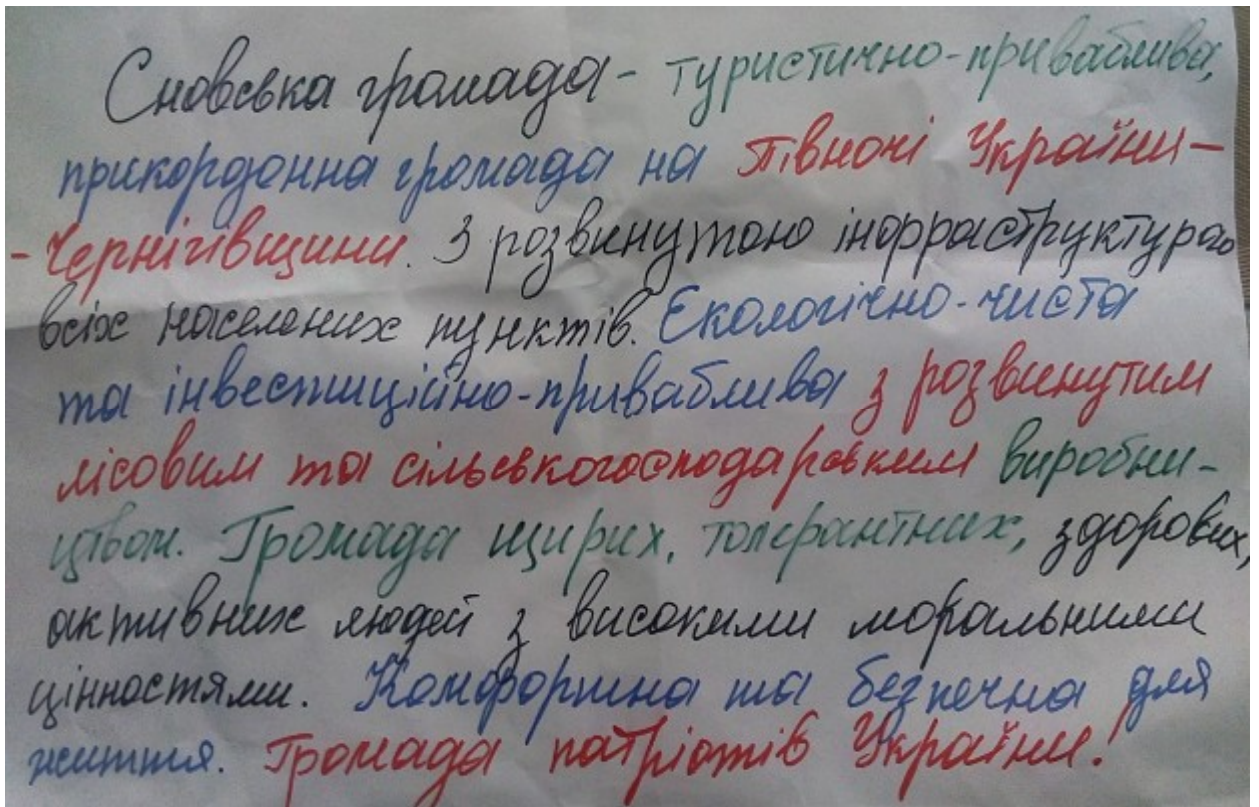 Сновська громада - туристично-приваблива,
прикордонна громада на півночі України -
- Чернігівщини. З розвинутою інфраструктурою
всіх населених пунктів. Екологічно-чиста
та інвестиційно-приваблива з розвинутим
лісовим та сільськогосподарським виробни-
цтвом. Громада щирих, толерантних, здорових,
активних людей з високими моральними
цінностями. Комфортна та безпечна для
життя. Громада патріотів України!